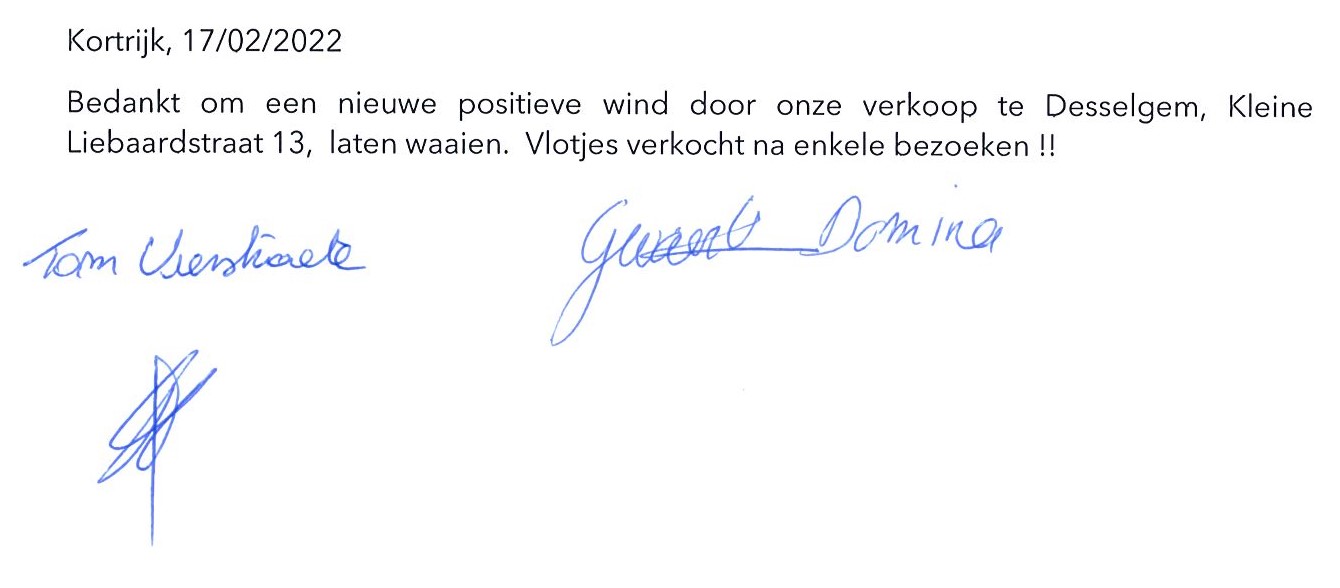 Kortrijk, 17/02/2022
Bedankt om een nieuwe positieve wind door onze verkoop te Desselgem, Kleine
Liebaardstraat 13, laten waaien. Vlotjes verkocht na enkele bezoeken !!
Tom Domina